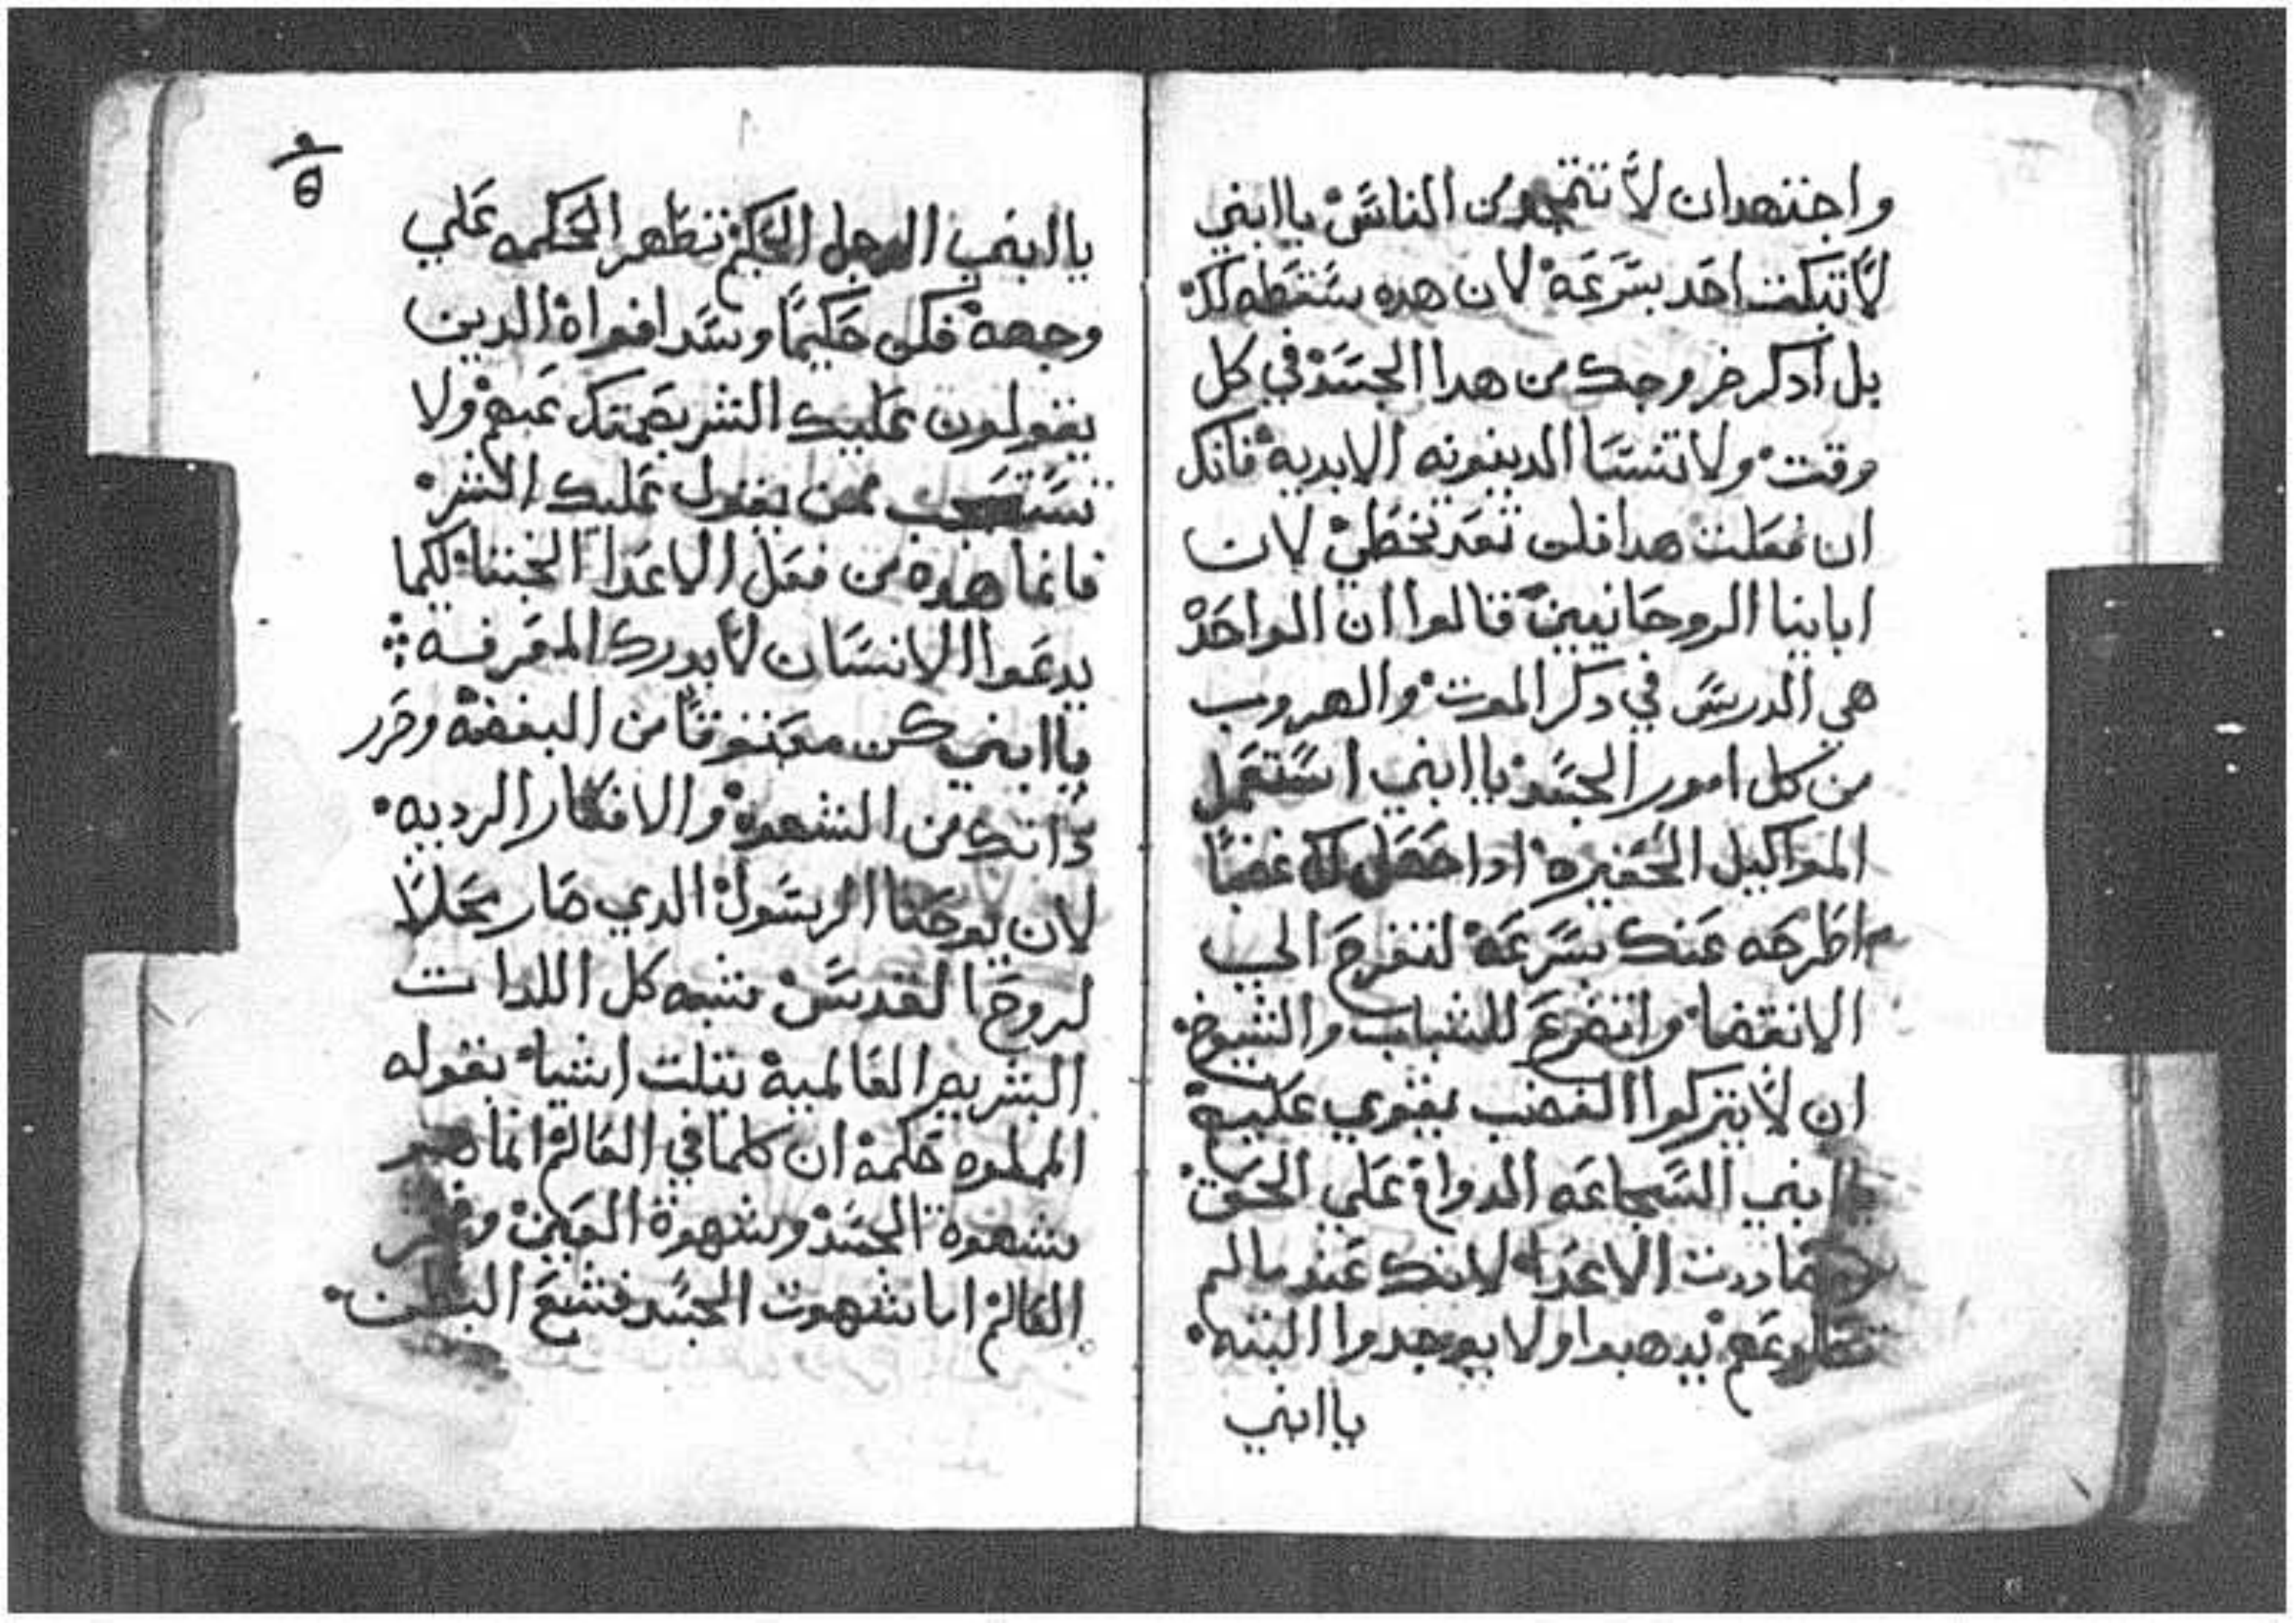 واجتهد ان لا تتمجد من الناس يا ابني
لا تبكت احد بسرعة لان هده سقطه لك
بل ادكر خروجك من هدا الجسد في كل
وقت ولا تنسا الدينونه الابدية فانك
ان فعلت هدا فلن تعد تخطي لان
اباينا الروحانيين قالوا ان الواحد
هي الدرس في دكر الموت والهروب
من كل امور الجسد يا ابني استعمل
المواكيل الحقيره ادا حصل لك غضبًا
اطرحه عنك بسرعة لتفرح الي
الانقضا واتضرع للشباب والشيوخ
ان لا يتركوا الغضب يقوي عليه
يا ابني الشجاعه الدوام علي الحق
الاعدا لانك عند ما لم
يدهبوا ولا يوجدوا البته
يا ابني
ⲑ
يا ابني الرجل الحكيم تظهر الحكمه علي
وجهه فكن حكيمًا وسد افواه الدين
يقولون عليك الشر بصمتك عنهم ولا
تستعجب ممن يقول عليك الشر
فانما هده من فعل الاعدا الخبثا لكما
يدعوا الانسان لا يدرك المعرفه
يا ابني كن معتوقًا من البغضه وحرر
داتك من الشهوة والافكار الرديه
لان يوحنا الرسول الدي صار محلاً
لروح القدس شبه كل اللدات
البشريه العالمية بتلت اشيا بقوله
المملوه حكمة ان كلما في العالم انما هو
شهوة الجسد وشهوة العين وفخر
العالم اما شهوت الجسد فشبع البطن